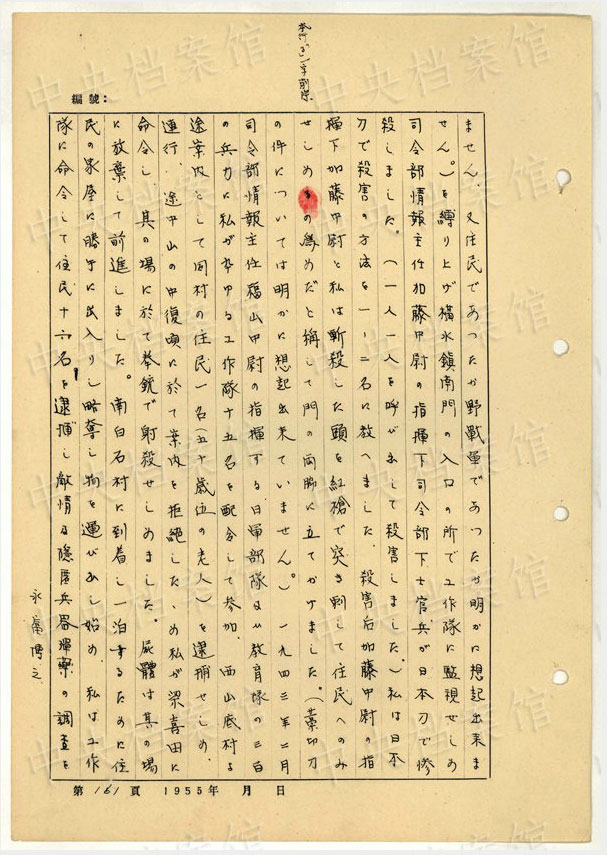 本行「る」一字削除
編號：
ません、又住民であつたか野戰軍であつたか明かに想起出来ま
せん。）を縛り上げ橫水鎮南門の入口の所で工作隊に監視せしめ
司令部情報主任加藤中尉の指揮下司令部下士官兵が日本刀で惨
殺しました。（一人一人を呼び出して殺害しました。）私は日本
刀で殺害の方法を一、二名に教へました。殺害后加藤中尉の指
揮下加藤中尉と私は斬殺した頭を紅槍で突き刺して住民へのみ
せしめの為めだと稱して門の両脇に立てかけました。（藁切刀
の件については明かに想起出来ていません。）一九四三年二月
司令部情報主任福山中尉の指揮する日軍部隊及教育隊の三百
の兵力に私が率ゆる工作隊十五名を配合して参加、西山底村よ
途案内として同村の住民一名（五十歳位の老人）を逮捕せしめ、
連行、途中山の中復頃に於て案内を拒絶したため私が梁喜田に
命令し其の場に於て拳銃で射殺せしめました。屍體は其の場
に放棄して前進しました。南白石村に到着し一泊するために住
民の家屋に勝手に出入りし略奪し物を運び出し始め、私は工作
隊に命令して住民十六名を逮捕し敵情及隠匿兵器彈薬の調査を
永富博之
第161頁 1955年 月 日
中央档案馆